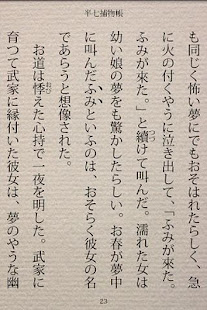 半七捕物帳
も同じく怖い夢にでもおそはれたらしく、急
に火の付くやうに泣き出して、「ふみが来た。
ふみが来た。」と続けて叫んだ。濡れた女は
幼い娘の夢をも驚かしたらしい。お春が夢中
に叫んだふみといふのは、おそらく彼女の名
であらうと想像された。
お道は悸えた心持で一夜を明した。武家に
育つて武家に縁付いた彼女は、夢のやうな幽
23